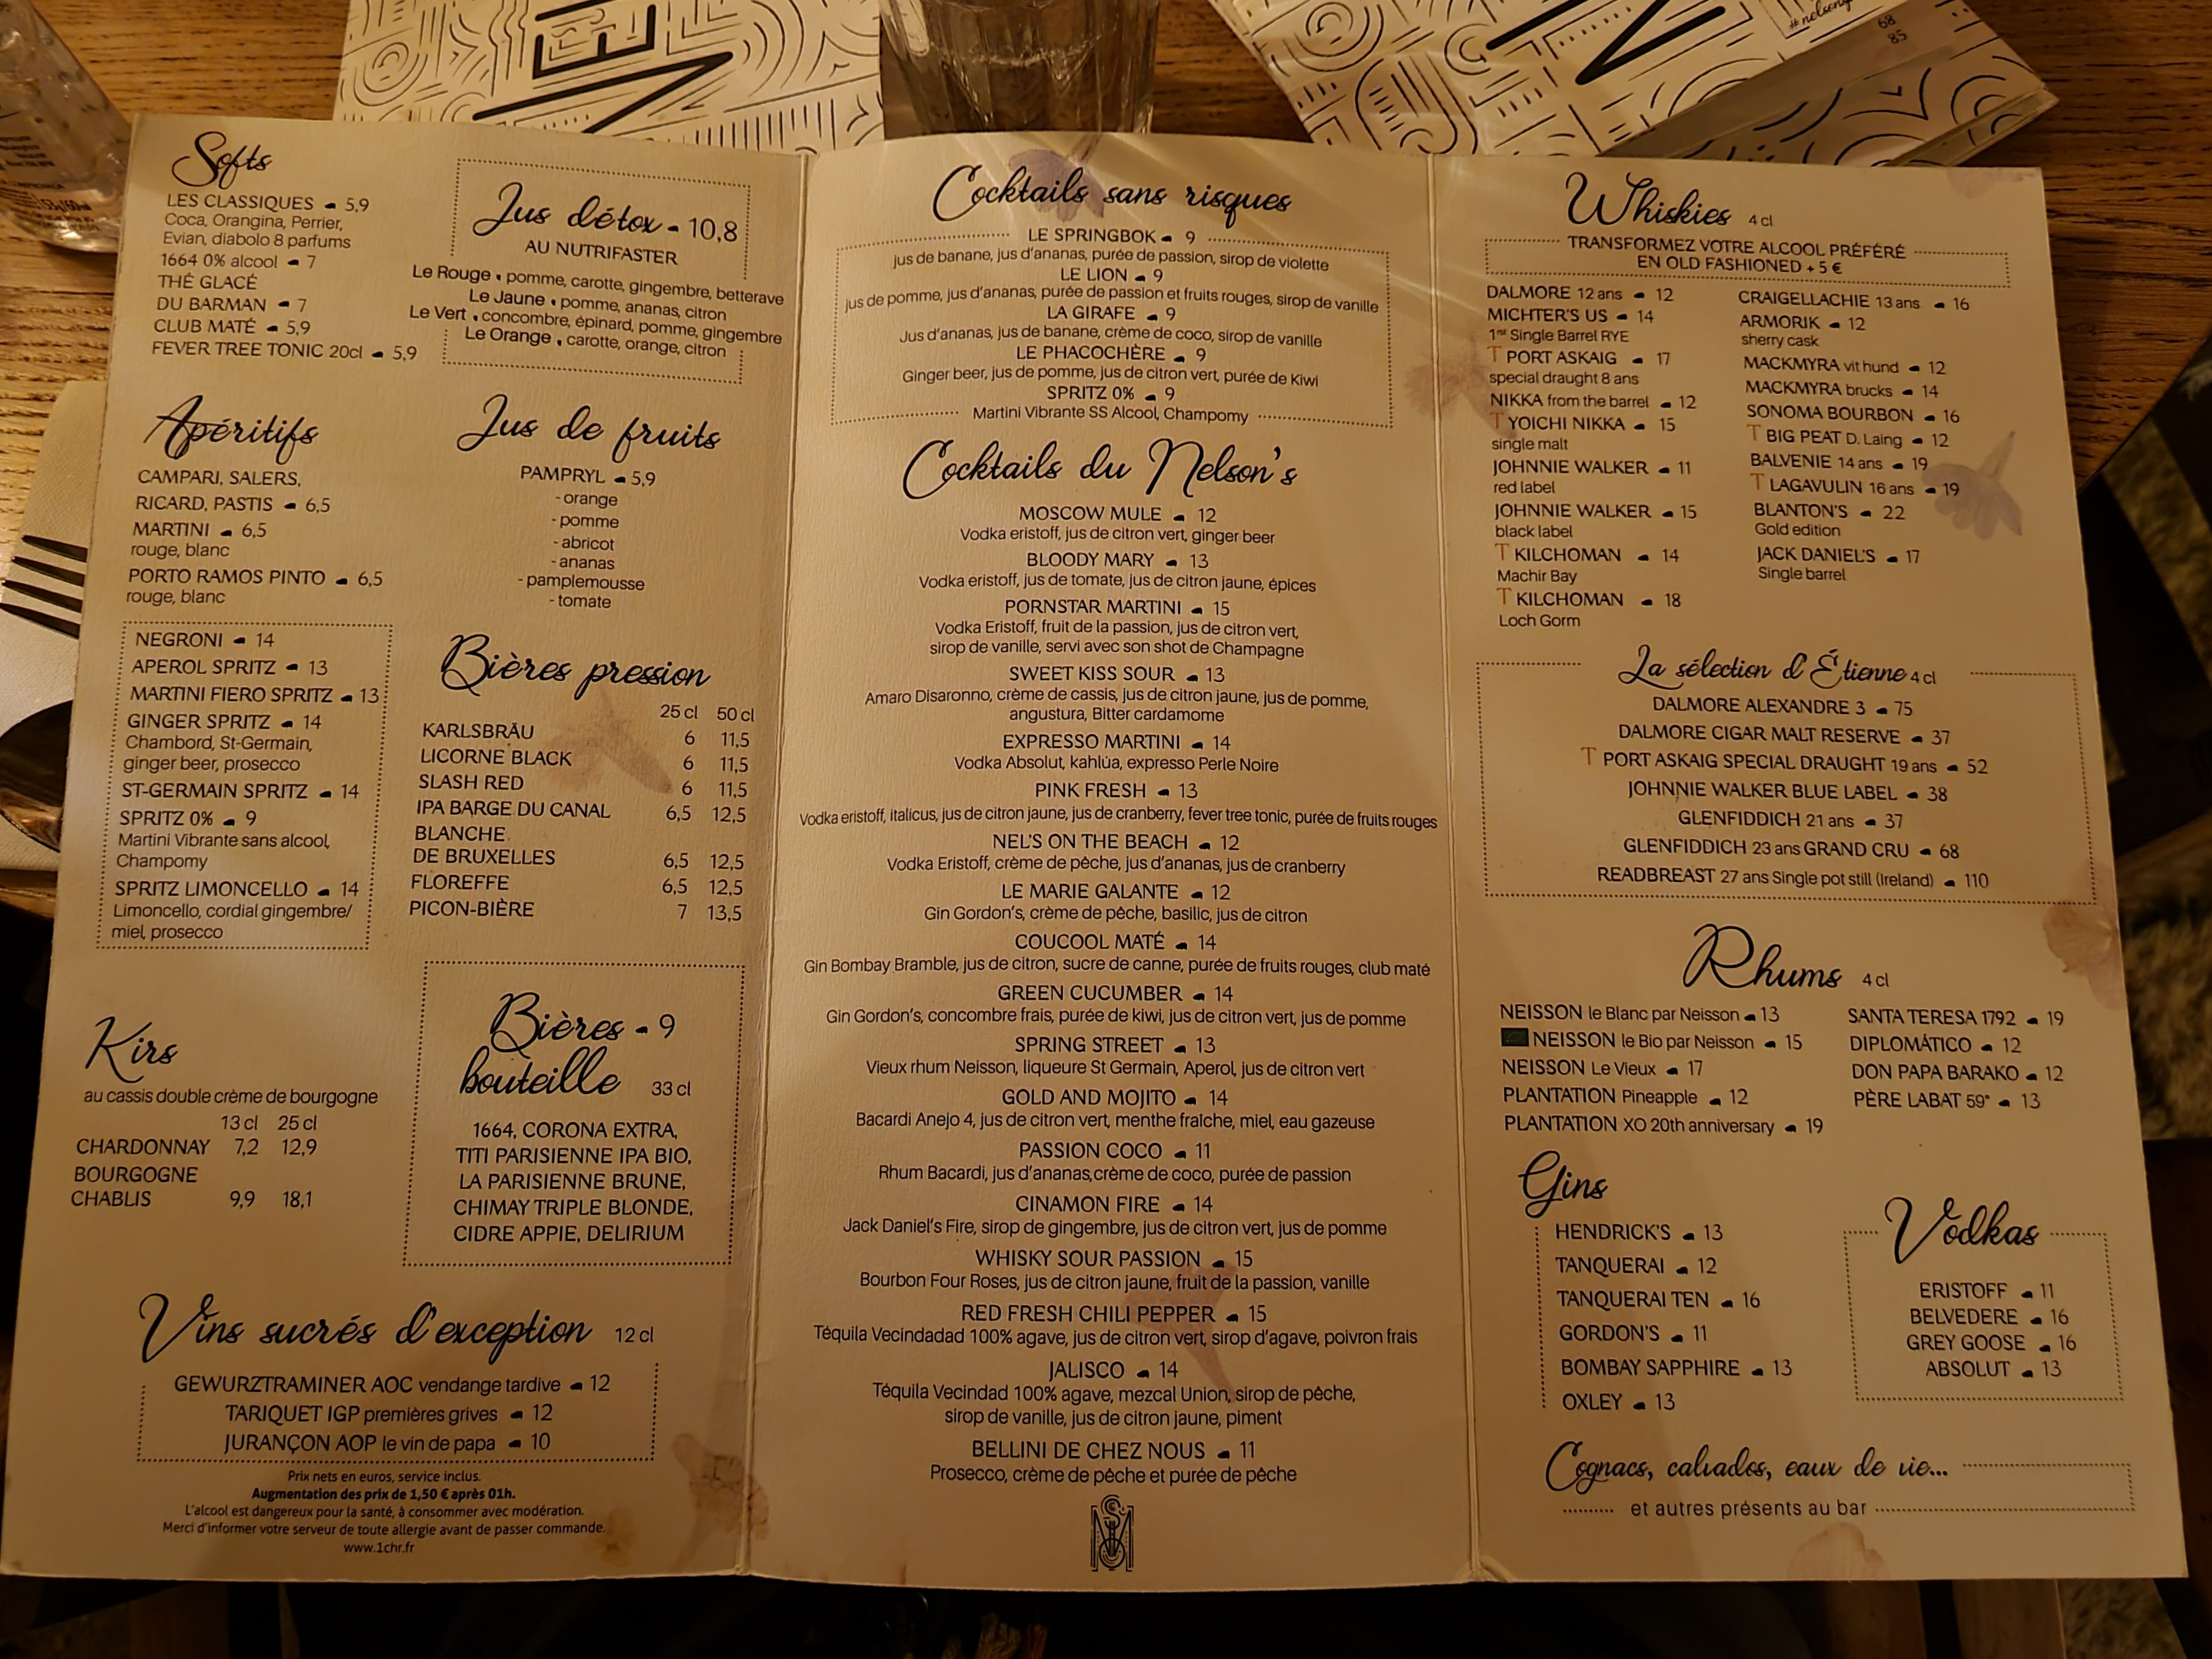 #nelson
68
85
Softs
LES CLASSIQUES - 5,9
Coca, Orangina, Perrier,
Evian, diabolo 8 parfums
1664 0% alcool - 7
THÉ GLACÉ
DU BARMAN - 7
CLUB MATÉ - 5,9
FEVER TREE TONIC 20cl - 5,9
Jus détox - 10,8
AU NUTRIFASTER
Le Rouge • pomme, carotte, gingembre, betterave
Le Jaune • pomme, ananas, citron
Le Vert • concombre, épinard, pomme, gingembre
Le Orange • carotte, orange, citron
Apéritifs
CAMPARI, SALERS,
RICARD, PASTIS - 6,5
MARTINI - 6,5
rouge, blanc
PORTO RAMOS PINTO - 6,5
rouge, blanc
NEGRONI - 14
APEROL SPRITZ - 13
MARTINI FIERO SPRITZ - 13
GINGER SPRITZ - 14
Chambord, St-Germain,
ginger beer, prosecco
ST-GERMAIN SPRITZ - 14
SPRITZ 0% - 9
Martini Vibrante sans alcool,
Champomy
SPRITZ LIMONCELLO - 14
Limoncello, cordial gingembre/
miel, prosecco
Jus de fruits
PAMPRYL - 5,9
- orange
- pomme
- abricot
- ananas
- pamplemousse
- tomate
Bières pression
25 cl 50 cl
KARLSBRÄU 6 11,5
LICORNE BLACK 6 11,5
SLASH RED 6 11,5
IPA BARGE DU CANAL 6,5 12,5
BLANCHE
DE BRUXELLES 6,5 12,5
FLOREFFE 6,5 12,5
PICON-BIÈRE 7 13,5
Kirs
au cassis double crème de bourgogne
13 cl 25 cl
CHARDONNAY 7,2 12,9
BOURGOGNE
CHABLIS 9,9 18,1
Bières - 9
bouteille 33 cl
1664, CORONA EXTRA,
TITI PARISIENNE IPA BIO,
LA PARISIENNE BRUNE,
CHIMAY TRIPLE BLONDE,
CIDRE APPIE, DELIRIUM
Vins sucrés d'exception 12 cl
GEWURZTRAMINER AOC vendange tardive - 12
TARIQUET IGP premières grives - 12
JURANÇON AOP le vin de papa - 10
Prix nets en euros, service inclus.
Augmentation des prix de 1,50 € après 01h.
L'alcool est dangereux pour la santé, à consommer avec modération.
Merci d'informer votre serveur de toute allergie avant de passer commande.
www.1chr.fr
Cocktails sans risques
LE SPRINGBOK - 9
jus de banane, jus d'ananas, purée de passion, sirop de violette
LE LION - 9
jus de pomme, jus d'ananas, purée de passion et fruits rouges, sirop de vanille
LA GIRAFE - 9
Jus d'ananas, jus de banane, crème de coco, sirop de vanille
LE PHACOCHÈRE - 9
Ginger beer, jus de pomme, jus de citron vert, purée de Kiwi
SPRITZ 0% - 9
Martini Vibrante SS Alcool, Champomy
Cocktails du Nelson's
MOSCOW MULE - 12
Vodka eristoff, jus de citron vert, ginger beer
BLOODY MARY - 13
Vodka eristoff, jus de tomate, jus de citron jaune, épices
PORNSTAR MARTINI - 15
Vodka Eristoff, fruit de la passion, jus de citron vert,
sirop de vanille, servi avec son shot de Champagne
SWEET KISS SOUR - 13
Amaro Disaronno, crème de cassis, jus de citron jaune, jus de pomme,
angustura, Bitter cardamome
EXPRESSO MARTINI - 14
Vodka Absolut, kahlúa, expresso Perle Noire
PINK FRESH - 13
Vodka eristoff, italicus, jus de citron jaune, jus de cranberry, fever tree tonic, purée de fruits rouges
NEL'S ON THE BEACH - 12
Vodka Eristoff, crème de pêche, jus d'ananas, jus de cranberry
LE MARIE GALANTE - 12
Gin Gordon's, crème de pêche, basilic, jus de citron
COUCOOL MATÉ - 14
Gin Bombay Bramble, jus de citron, sucre de canne, purée de fruits rouges, club maté
GREEN CUCUMBER - 14
Gin Gordon's, concombre frais, purée de kiwi, jus de citron vert, jus de pomme
SPRING STREET - 13
Vieux rhum Neisson, liqueure St Germain, Aperol, jus de citron vert
GOLD AND MOJITO - 14
Bacardi Anejo 4, jus de citron vert, menthe fraîche, miel, eau gazeuse
PASSION COCO - 11
Rhum Bacardi, jus d'ananas,crème de coco, purée de passion
CINAMON FIRE - 14
Jack Daniel's Fire, sirop de gingembre, jus de citron vert, jus de pomme
WHISKY SOUR PASSION - 15
Bourbon Four Roses, jus de citron jaune, fruit de la passion, vanille
RED FRESH CHILI PEPPER - 15
Téquila Vecindadad 100% agave, jus de citron vert, sirop d'agave, poivron frais
JALISCO - 14
Téquila Vecindad 100% agave, mezcal Union, sirop de pêche,
sirop de vanille, jus de citron jaune, piment
BELLINI DE CHEZ NOUS - 11
Prosecco, crème de pêche et purée de pêche
Whiskies 4 cl
TRANSFORMEZ VOTRE ALCOOL PRÉFÉRÉ
EN OLD FASHIONED + 5 €
DALMORE 12 ans - 12
MICHTER'S US - 14
1st Single Barrel RYE
T PORT ASKAIG - 17
special draught 8 ans
NIKKA from the barrel - 12
T YOICHI NIKKA - 15
single malt
JOHNNIE WALKER - 11
red label
JOHNNIE WALKER - 15
black label
T KILCHOMAN - 14
Machir Bay
T KILCHOMAN - 18
Loch Gorm
CRAIGELLACHIE 13 ans - 16
ARMORIK - 12
sherry cask
MACKMYRA vit hund - 12
MACKMYRA brucks - 14
SONOMA BOURBON - 16
T BIG PEAT D. Laing - 12
BALVENIE 14 ans - 19
T LAGAVULIN 16 ans - 19
BLANTON'S - 22
Gold edition
JACK DANIEL'S - 17
Single barrel
La sélection d'Étienne 4 cl
DALMORE ALEXANDRE 3 - 75
DALMORE CIGAR MALT RESERVE - 37
T PORT ASKAIG SPECIAL DRAUGHT 19 ans - 52
JOHNNIE WALKER BLUE LABEL - 38
GLENFIDDICH 21 ans - 37
GLENFIDDICH 23 ans GRAND CRU - 68
READBREAST 27 ans Single pot still (Ireland) - 110
Rhums 4 cl
NEISSON le Blanc par Neisson - 13
NEISSON le Bio par Neisson - 15
NEISSON Le Vieux - 17
PLANTATION Pineapple - 12
PLANTATION XO 20th anniversary - 19
SANTA TERESA 1792 - 19
DIPLOMÁTICO - 12
DON PAPA BARAKO - 12
PÈRE LABAT 59° - 13
Gins
HENDRICK'S - 13
TANQUERAI - 12
TANQUERAI TEN - 16
GORDON'S - 11
BOMBAY SAPPHIRE - 13
OXLEY - 13
Vodkas
ERISTOFF - 11
BELVEDERE - 16
GREY GOOSE - 16
ABSOLUT - 13
Cognacs, calvados, eaux de vie...
et autres présents au bar